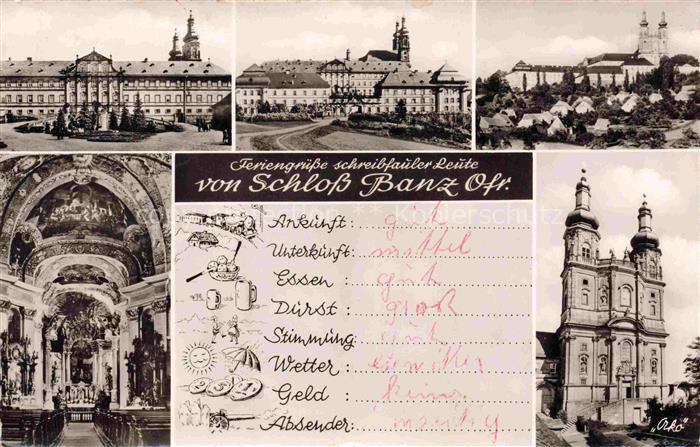 Feriengrüße schreibfauler Leute
von Schloß Banz Ofr.
Ankunft: gut
Unterkunft: mittel
Essen: gut
Durst: groß
Stimmung: gut
Wetter:
Geld: keins
Absender:
"Orko"